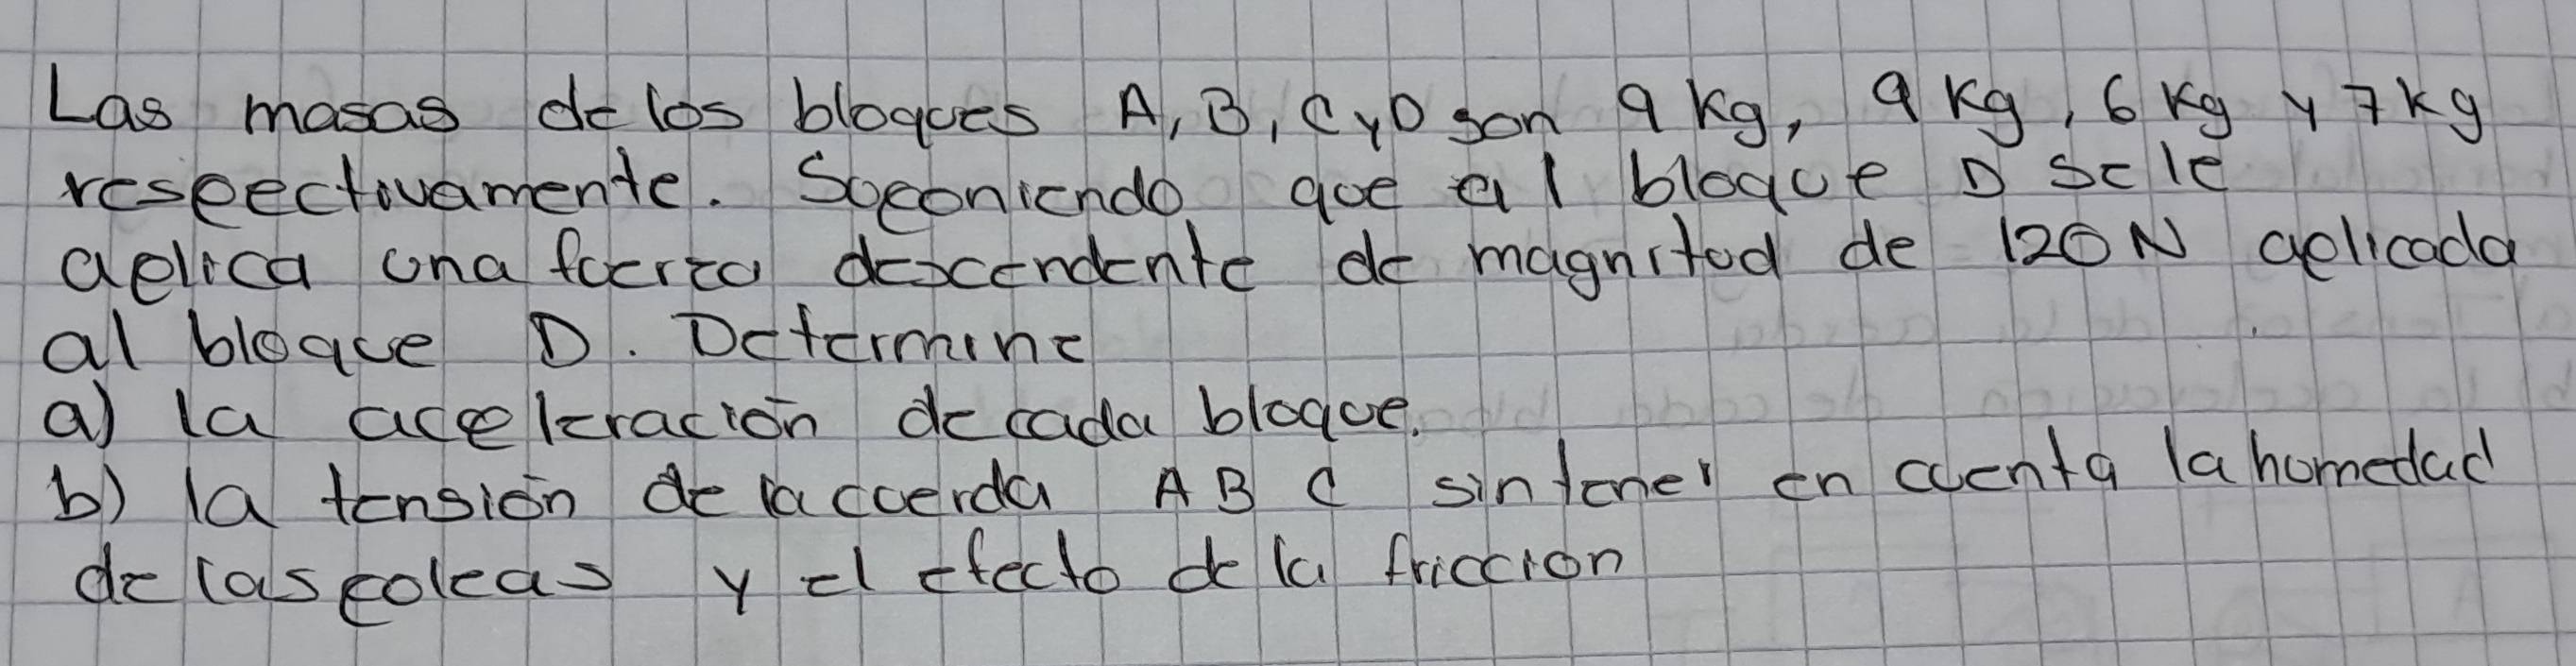 Las masas de los bloques A, B, C y D son 9 kg, 9 kg, 6 kg y 7 kg
respectivamente. Suponiendo que al bloque D se le
aplica una fuerza descendente de magnitud de 120 N aplicada
al bloque D. Determine
a) la aceleración de cada bloque.
b) la tensión de la cuerda ABC sin tener en cuenta la humedad
de las poleas y el efecto de la friccion